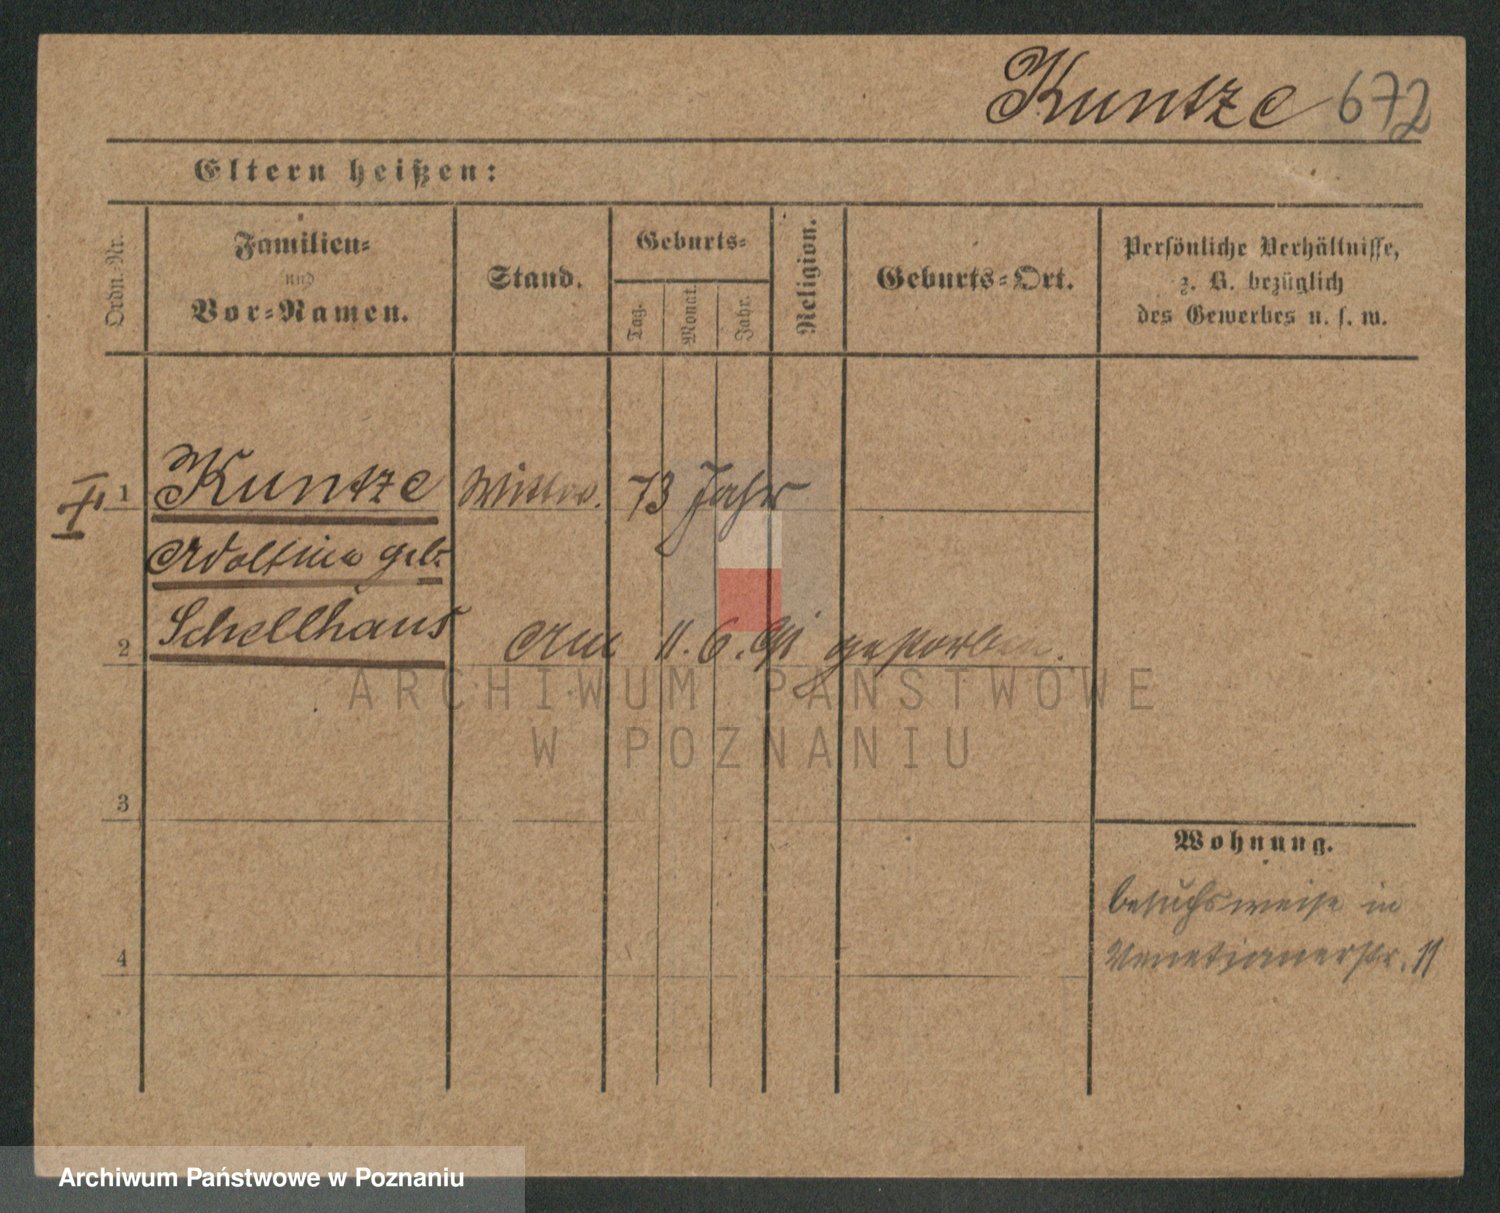 Kuntze 672
Eltern heißen:
Ordn.-Nr.
Familien-
und
Vor-Namen.
Stand.
Geburts-
Tag.
Monat.
Jahr.
Religion.
Geburts-Ort.
Persönliche Verhältnisse,
z. B. bezüglich
des Gewerbes u. s. w.
1 Kuntze Wittwe. 73 Jahr
Adolfine geb.
2 Schellhaus Am 11.6.91 gestorben.
ARCHIWUM PAŃSTWOWE
W POZNANIU
3
Wohnung.
besuchsweise in
4 Venetianerstr. 11
Archiwum Państwowe w Poznaniu